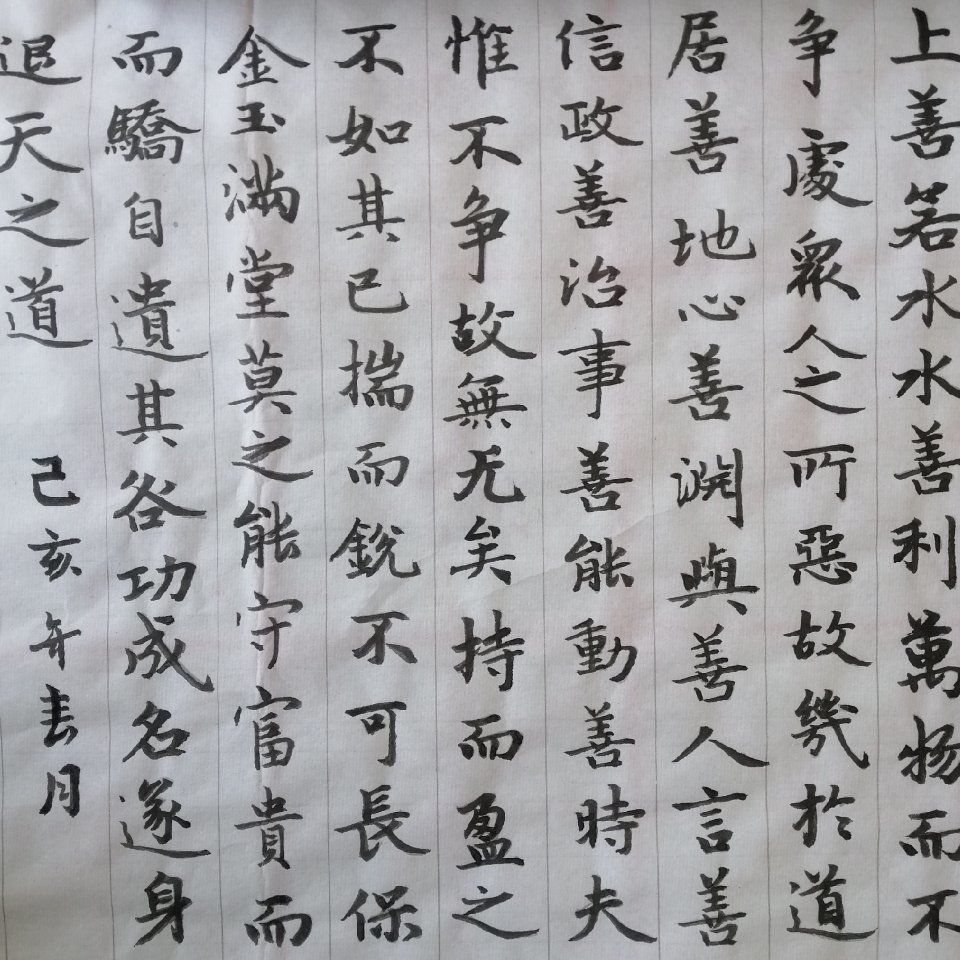 上善若水水善利萬物而不
争處眾人之所惡故幾於道
居善地心善淵與善人言善
信政善治事善能動善時夫
惟不争故無尤矣持而盈之
不如其已揣而銳不可長保
金玉滿堂莫之能守富貴而
而驕自遺其咎功成名遂身
退天之道
己亥年春月